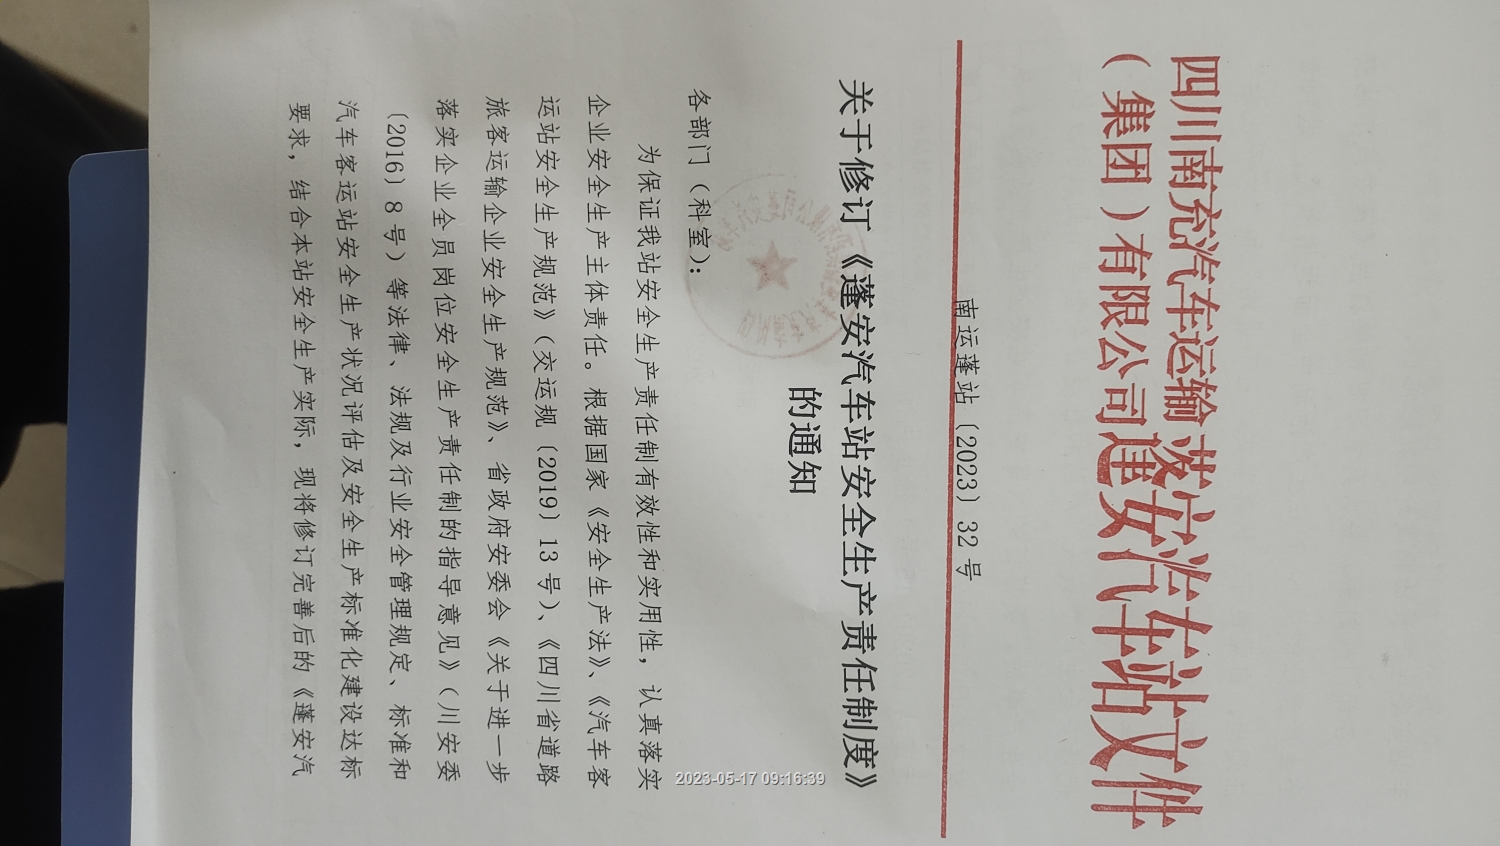 四川南充汽车运输
（集团）有限公司蓬安汽车站文件
南运蓬站〔2023〕32号
关于修订《蓬安汽车站安全生产责任制度》
的通知
各部门（科室）：
为保证我站安全生产责任制有效性和实用性，认真落实
企业安全生产主体责任。根据国家《安全生产法》、《汽车客
运站安全生产规范》（交运规〔2019〕13号）、《四川省道路
旅客运输企业安全生产规范》、省政府安委会《关于进一步
落实企业全员岗位安全生产责任制的指导意见》（川安委
〔2016〕8号）等法律、法规及行业安全管理规定、标准和
汽车客运站安全生产状况评估及安全生产标准化建设达标
要求，结合本站安全生产实际，现将修订完善后的《蓬安汽
2023-05-17 09:16:39